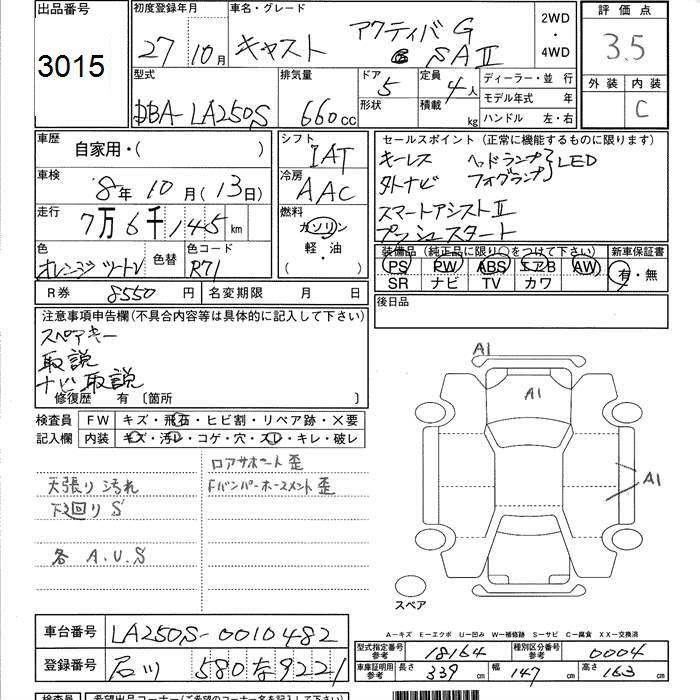 出品番号
3015
初度登録年月
27年10月
車名・グレード
キャスト アクティバ G SAⅡ
2WD
・
4WD
評価点
3.5
外装 内装
C
型式
DBA-LA250S
排気量
660cc
ドア 5
形状
定員 4人
積載 kg
ディーラー・並行
モデル年式 年
ハンドル 左・右
車歴
自家用・( )
車検
8年10月(13日)
走行
7万6千145km
色
オレンジツートン
色替
色コード
R71
シフト
IAT
冷房
AAC
燃料
ガソリン
軽・油
( )
セールスポイント(正常に機能するものに限ります)
キーレス ヘッドランプ LED
外ナビ フォグランプ
スマートアシストⅡ
プッシュスタート
装備品(純正品に限り○をつけて下さい)
PS PW ABS エアB AW
SR ナビ TV カワ
新車保証書
有・無
R券 8550円 名変期限 月 日
後日品
注意事項申告欄(不具合内容等は具体的に記入して下さい)
スペアキー
取説
ナビ取説
修復歴 有 〔箇所 〕
検査員 FW キズ・飛石・ヒビ割・リペア跡・×要
記入欄 内装 キズ・汚レ・コゲ・穴・スレ・キレ・破レ
天張り汚れ
下廻りS
各 A.U.S
ロアサポート歪
Fバンパーホースメント歪
A1
A1
A1
スペア
A-キズ E-エクボ U-凹み W-補修跡 S-サビ C-腐食 XX-交換済
車台番号 LA250S-0010482
登録番号 石川 580 な 9221
型式指定番号 参考 18164
種別区分番号 参考 0004
車庫証明用 参考 長さ 339cm 幅 147cm 高さ 163cm
検査員 希望出品コーナー(ご希望のコーナー名を記入して下さい)